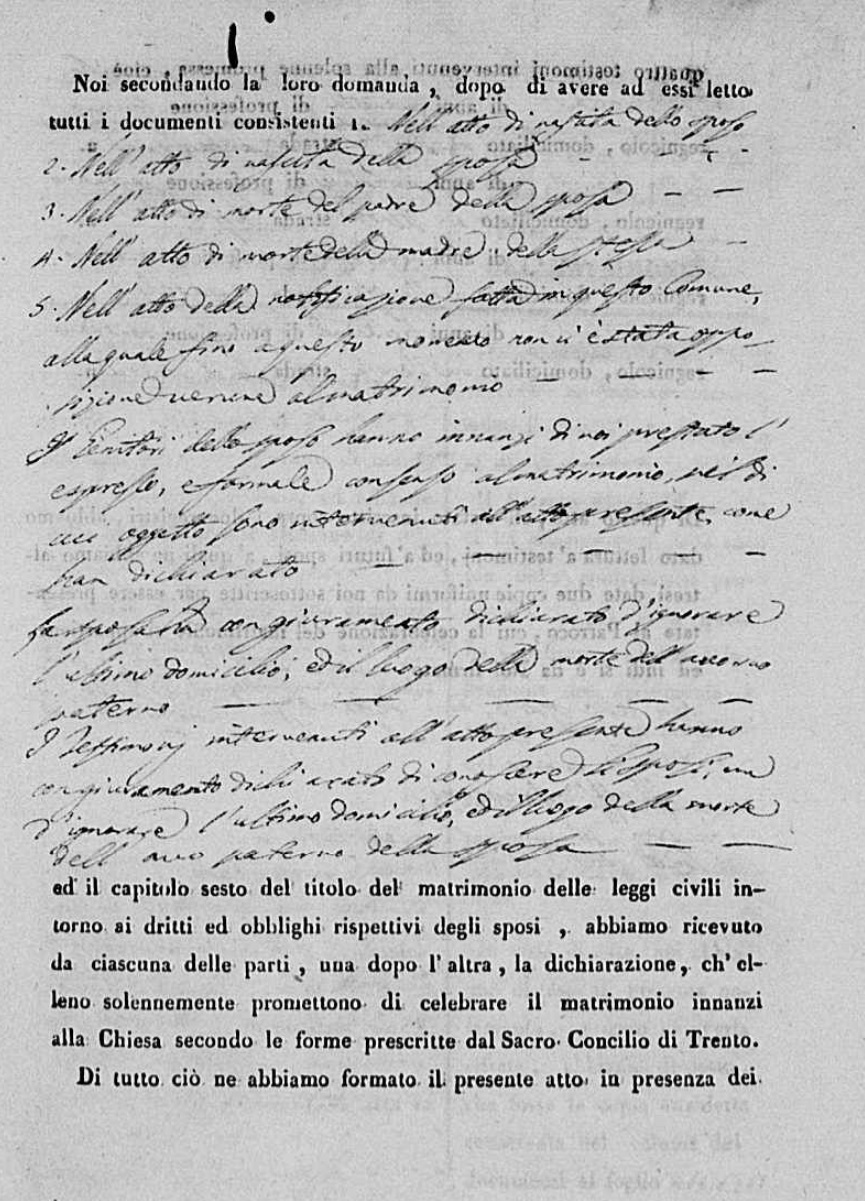 Noi secondando la loro domanda, dopo di avere ad essi letto
tutti i documenti consistenti 1. Nell'atto di nascita dello sposo
2. Nell'atto di nascita della sposa
3. Nell'atto di morte del padre della sposa
4. Nell'atto di morte della madre della stessa
5. Nell'atto della notificazione fatta in questo Comune,
alla quale fino a questo momento non vi è stata oppo-
sizione veruna al matrimonio
I Genitori dello sposo hanno innanzi di noi prestato l'
espresso, e formale consenso al matrimonio, nel di
cui oggetto sono intervenuti all'atto presente, come
han dichiarato
La sposa ha con giuramento dichiarato d'ignorare
l'ultimo domicilio, ed il luogo della morte dell'avo suo
paterno
I Testimonj intervenuti all'atto presente hanno
con giuramento dichiarato di conoscere li sposi, ma
d'ignorare l'ultimo domicilio, ed il luogo della morte
dell'avo paterno della sposa
ed il capitolo sesto del titolo del matrimonio delle leggi civili in-
torno ai dritti ed obblighi rispettivi degli sposi, abbiamo ricevuto
da ciascuna delle parti, una dopo l'altra, la dichiarazione, ch'el-
leno solennemente promettono di celebrare il matrimonio innanzi
alla Chiesa secondo le forme prescritte dal Sacro Concilio di Trento.
Di tutto ciò ne abbiamo formato il presente atto in presenza dei